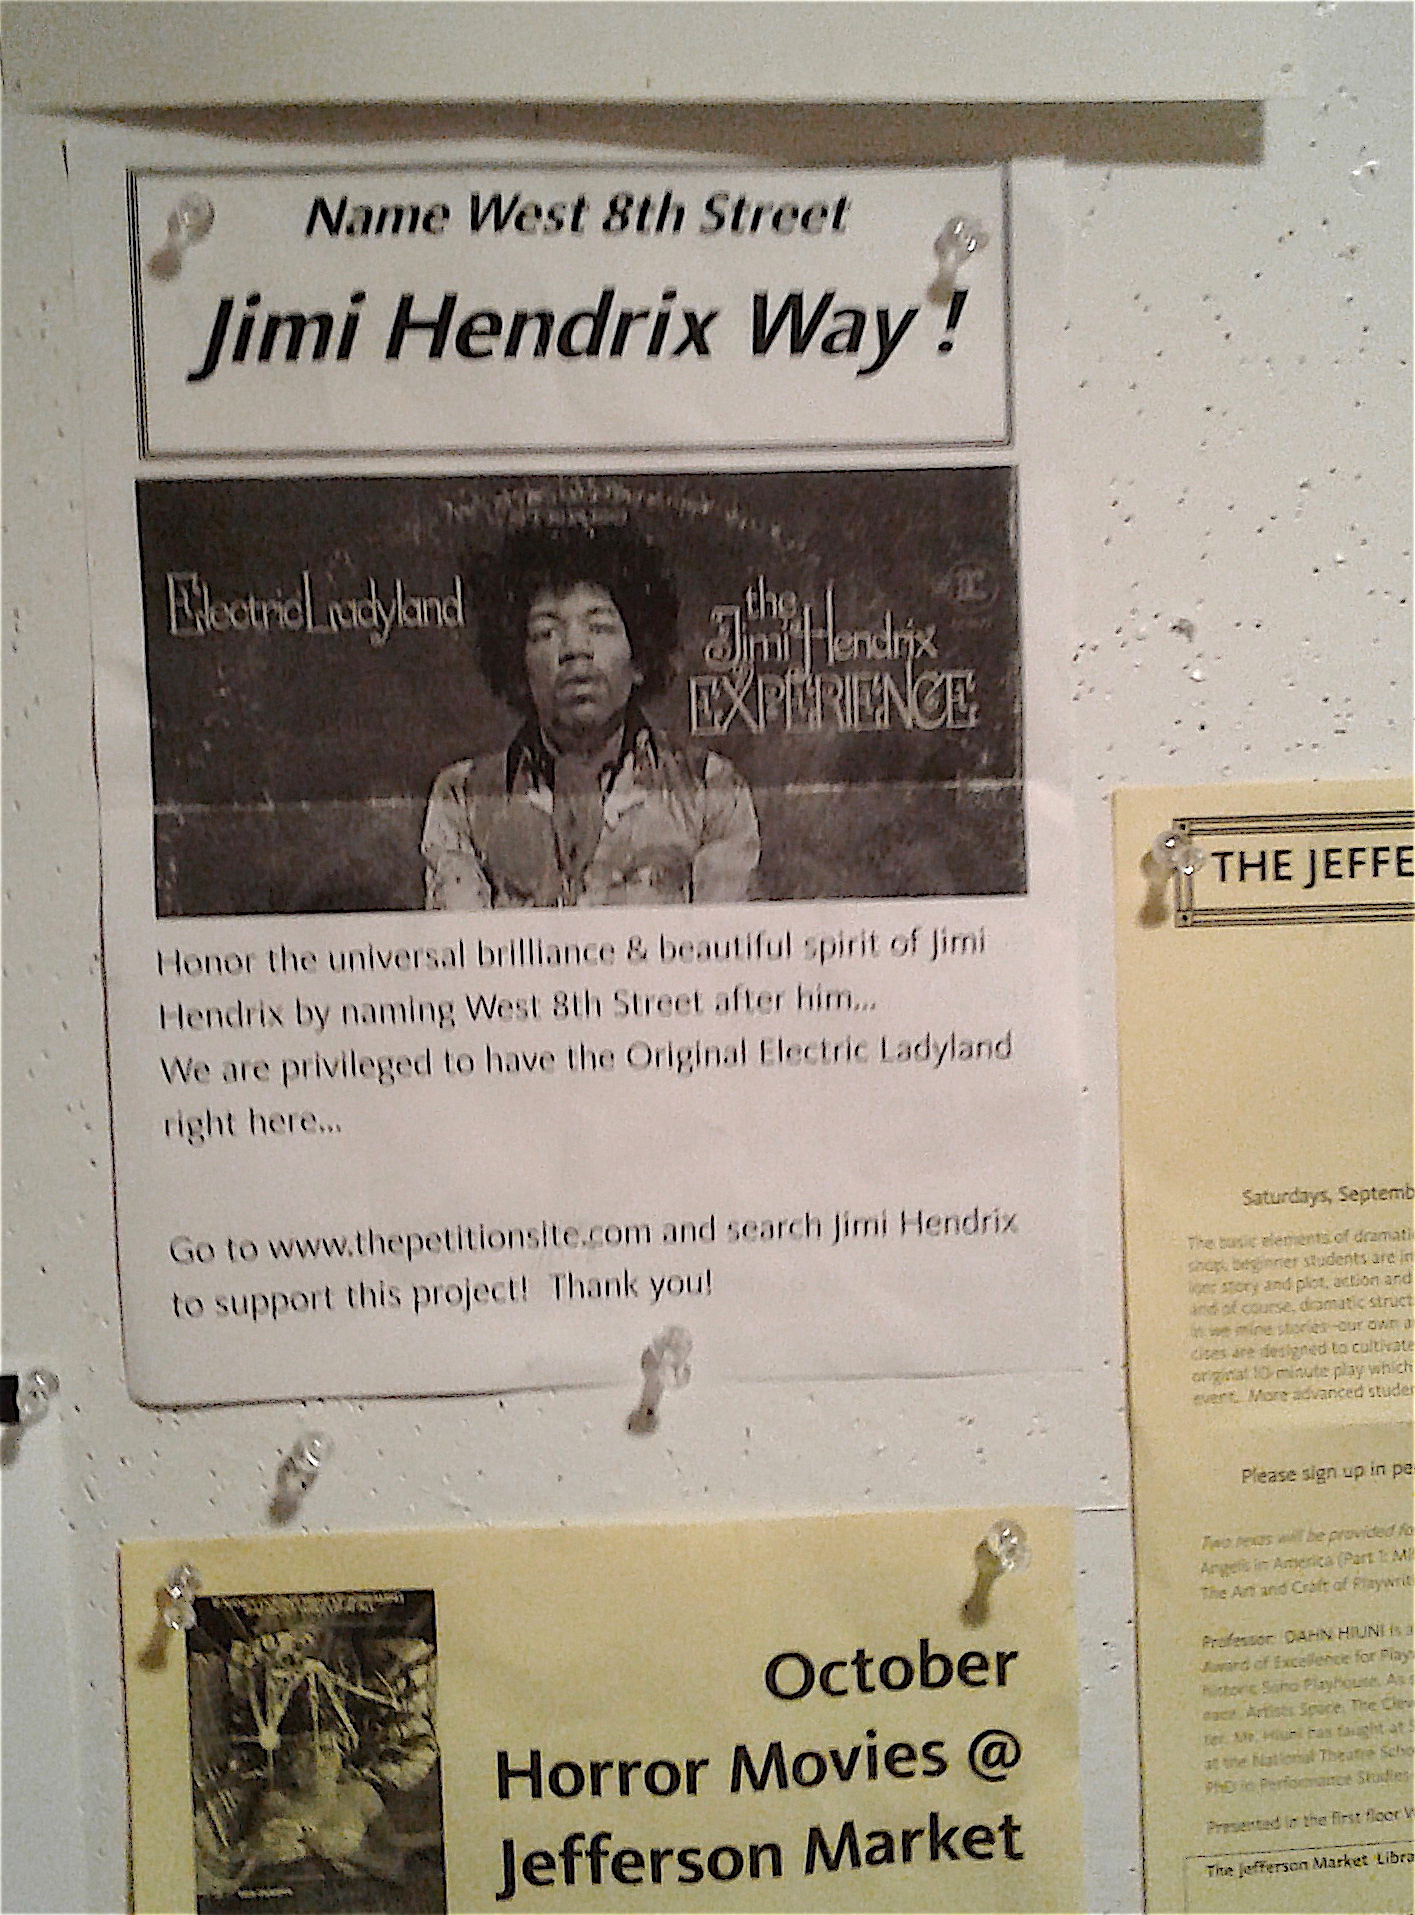 Name West 8th Street
Jimi Hendrix Way !
Electric Ladyland
the
Jimi Hendrix
EXPERIENCE
Honor the universal brilliance & beautiful spirit of Jimi
Hendrix by naming West 8th Street after him...
We are privileged to have the Original Electric Ladyland
right here...
Go to www.thepetitionsite.com and search Jimi Hendrix
to support this project! Thank you!
October
Horror Movies @
Jefferson Market
THE JEFFE
Saturdays, Septemb
The basic elements of dramatic
shop, beginner students are in
lore story and plot, action and
and of course, dramatic struct
in we mine stories--our own a
cises are designed to cultivate
original 10-minute play which
event. More advanced studen
Please sign up in pe
Two texts will be provided fo
Angels in America (Part 1: Mil
The Art and Craft of Playwriti
Professor: DAHN HIUNI is a
Award of Excellence for Playw
historic Soho Playhouse. As
Artists Space, The Clev
ter. Mr. Hiuni has taught at S
at the National Theatre Scho
PhD in Performance Studies
Presented in the first floor W
The Jefferson Market Libra